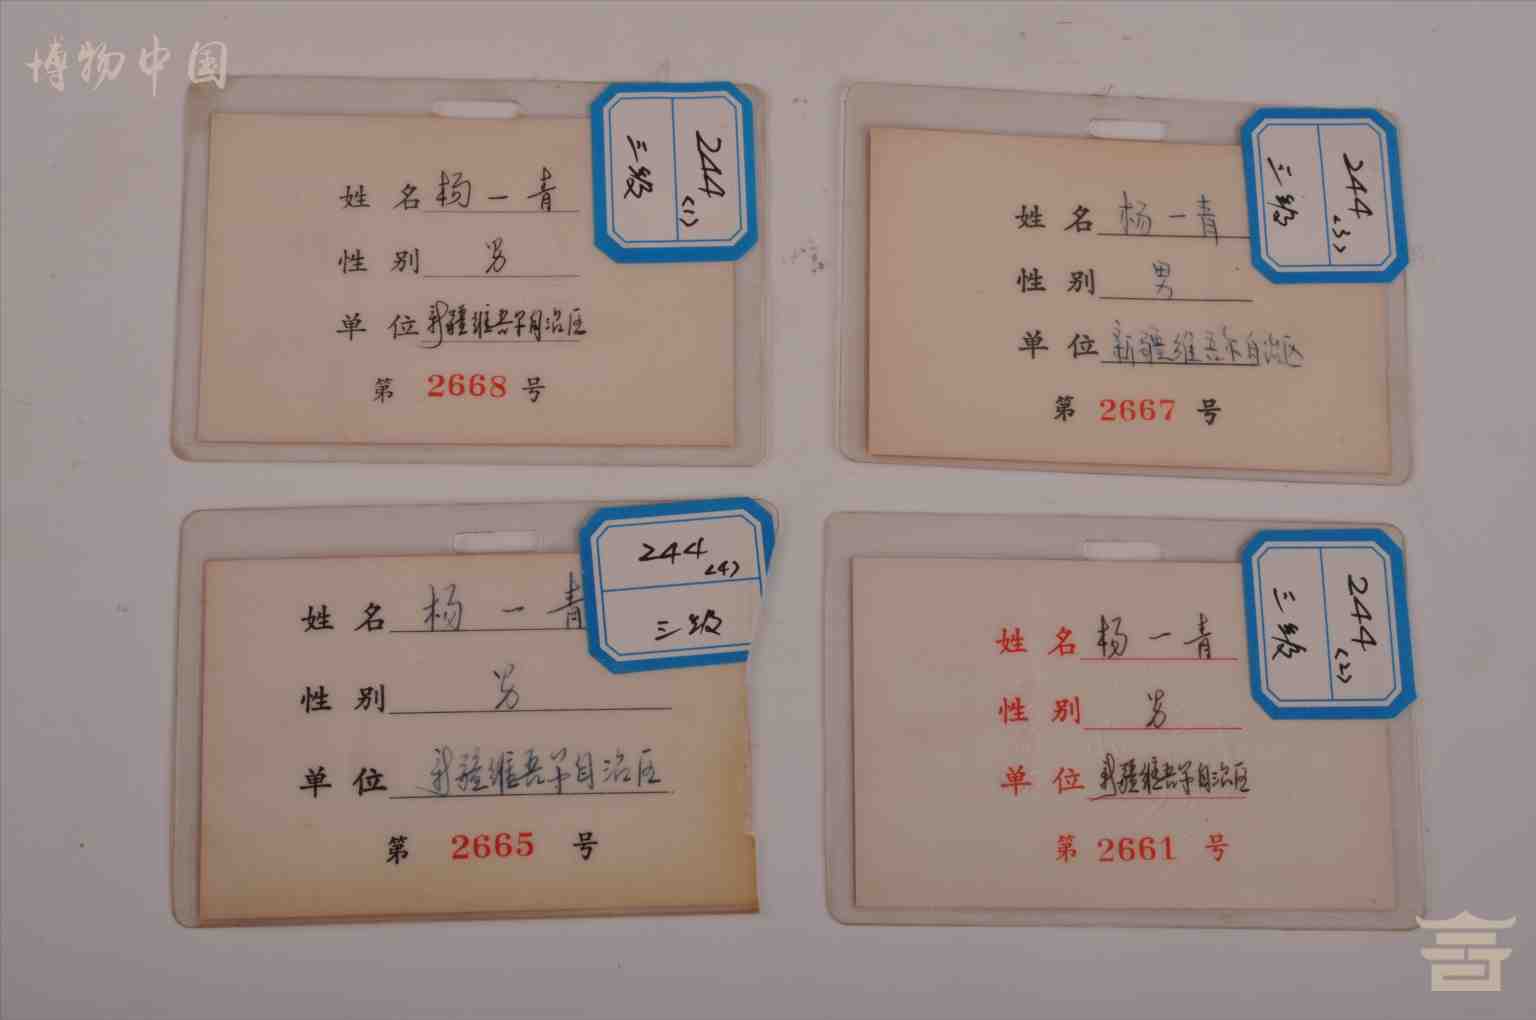 博物中国
姓 名 杨一青
性 别 男
单 位 新疆维吾尔自治区
第 2668 号
244
(1)
三级
姓 名 杨一青
性 别 男
单 位 新疆维吾尔自治区
第 2667 号
244
(3)
三级
姓 名 杨一青
性 别 男
单 位 新疆维吾尔自治区
第 2665 号
244
(4)
三级
姓 名 杨一青
性 别 男
单 位 新疆维吾尔自治区
第 2661 号
244
(2)
三级